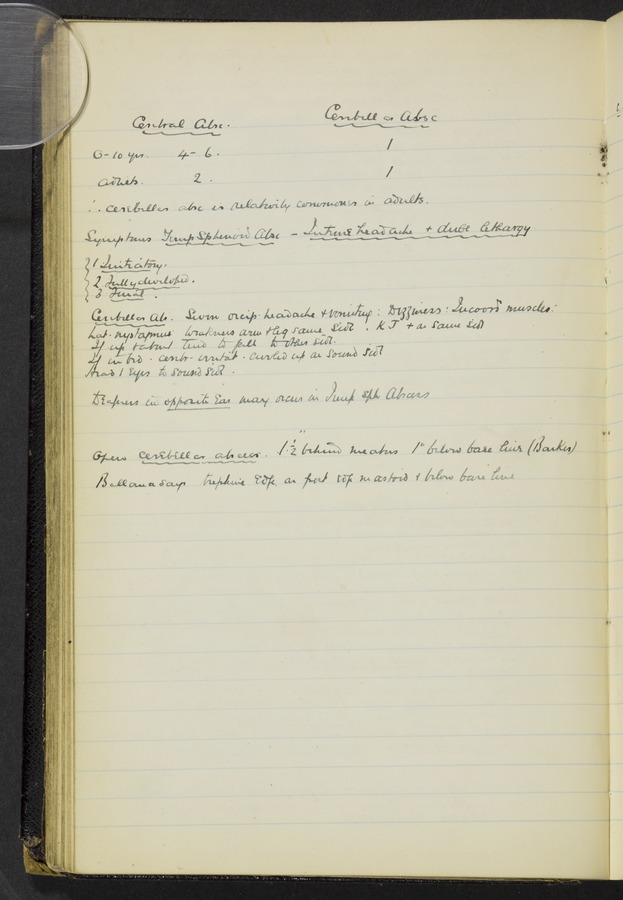 Cerebral Absc. Cerebellar Absc
0-10 yrs. 4-6. 1
adults. 2. 1
∴ cerebellar absc is relatively commoner in adults.
Symptoms Temp Sphenoid Absc - Intense headache + dull lethargy
1 Initiatory.
2 Fully developed.
3 Final.
Cerebellar Abs. Severe occip. headache + vomiting: Dizziness: Incoord muscles:
Lat. nystagmus weakness arm & leg same side. KJ + on same side
If up & about tend to fall to other side.
If in bed - cereb. irritat. - curled up on sound side
Head & Eyes to sound side.
Deafness in opposite ear may occur in Temp Sph Abscess
Open cerebellar abscess. 1½" behind meatus 1" below base line (Barker)
Ballance says trephine edge on post edge mastoid & below base line